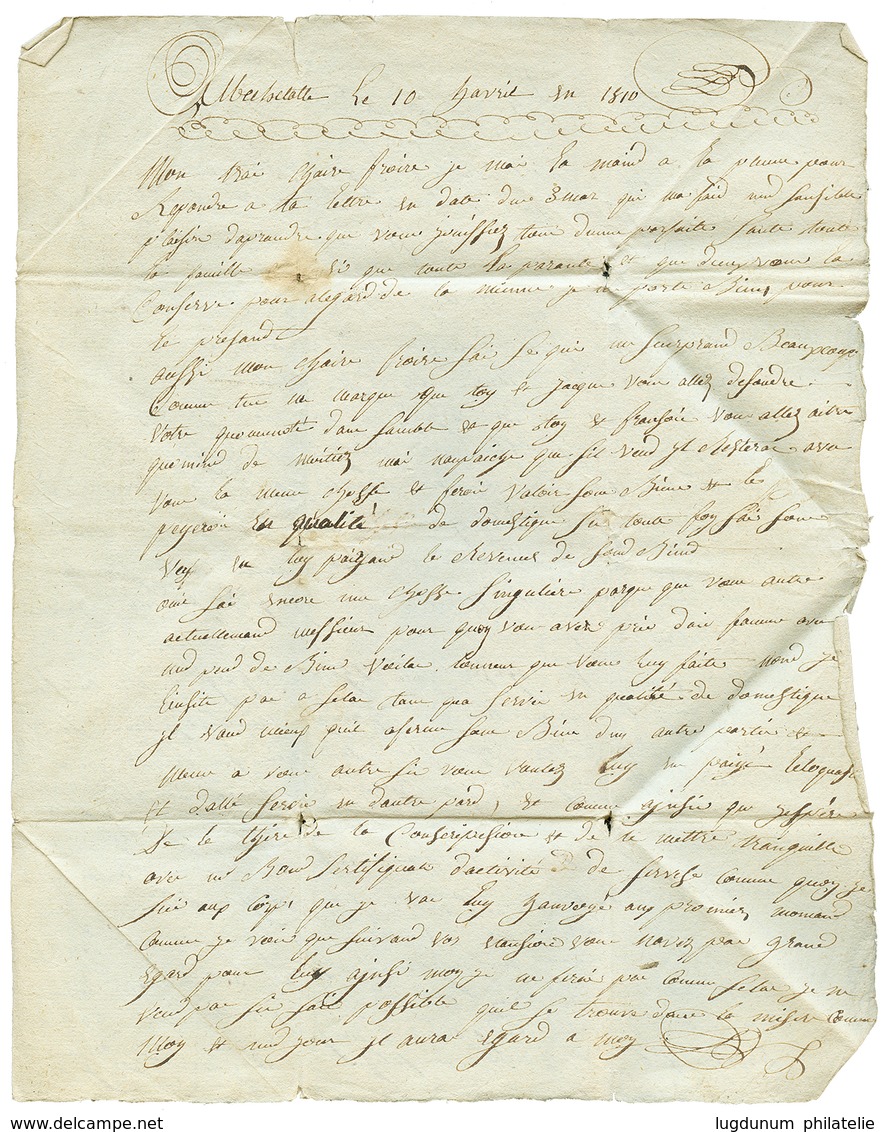 Le 10 havril en 1810
Mon trai chaire froire je mai la maind a la plume pour
Repondre a ta lettre en date du 3 mar qui ma faid und sansible
plaisire daprandre que vous jouissiez tous dunne parfaite santé toute
la famille si que toute la parante et que dieu vous la
Conserve pour alegard de la mienne je me porte Bien, pour
le presand
aussi mon chaire froire sai se qui me surprand Beaucoup
Comme tu me marque que toy et jacque vous allez desandre
votre quomunoté dans sanble et que toy et fransois vous allez aitre
quomind de moitiez mai
vous la meme chosse et feroi valoir son Bien et le
payeroi en qualité de domestique
en luy païjand le Revenus de sond Bind
oui sai encore une chosse singuliere parque que vous autre
actuellemand messieur pour quoy vous avez prie dai famme avec
und peud de Bien voila lonneur que vous luy faite nond je
linsite pas a selas tant qua servire en qualité de domestique
jl vaud mieux quil aferme son Bien dun autre partie et
meme a vous autre si vous voulez luy en paijé
et dallé servire en dautre pard, et comme ajnsie que jespére
de le thire de la Conscripsion et de le mettre tranquille
avec un Bond sertifiquat dactivité de servise comme quoy je
sui aux corps que je vai luy Zanvoyé au promier momand
Comme je voi que suivand vos vous navez pas grand
Egard pour luy ajnsi moy je ne ferai pas comme selas je ne
veud pas sil sai possible quil se trouve dans la misere comme
Moy et und jour jl aura Egard a moy
www.delcampe.net
lugdunum philatelie